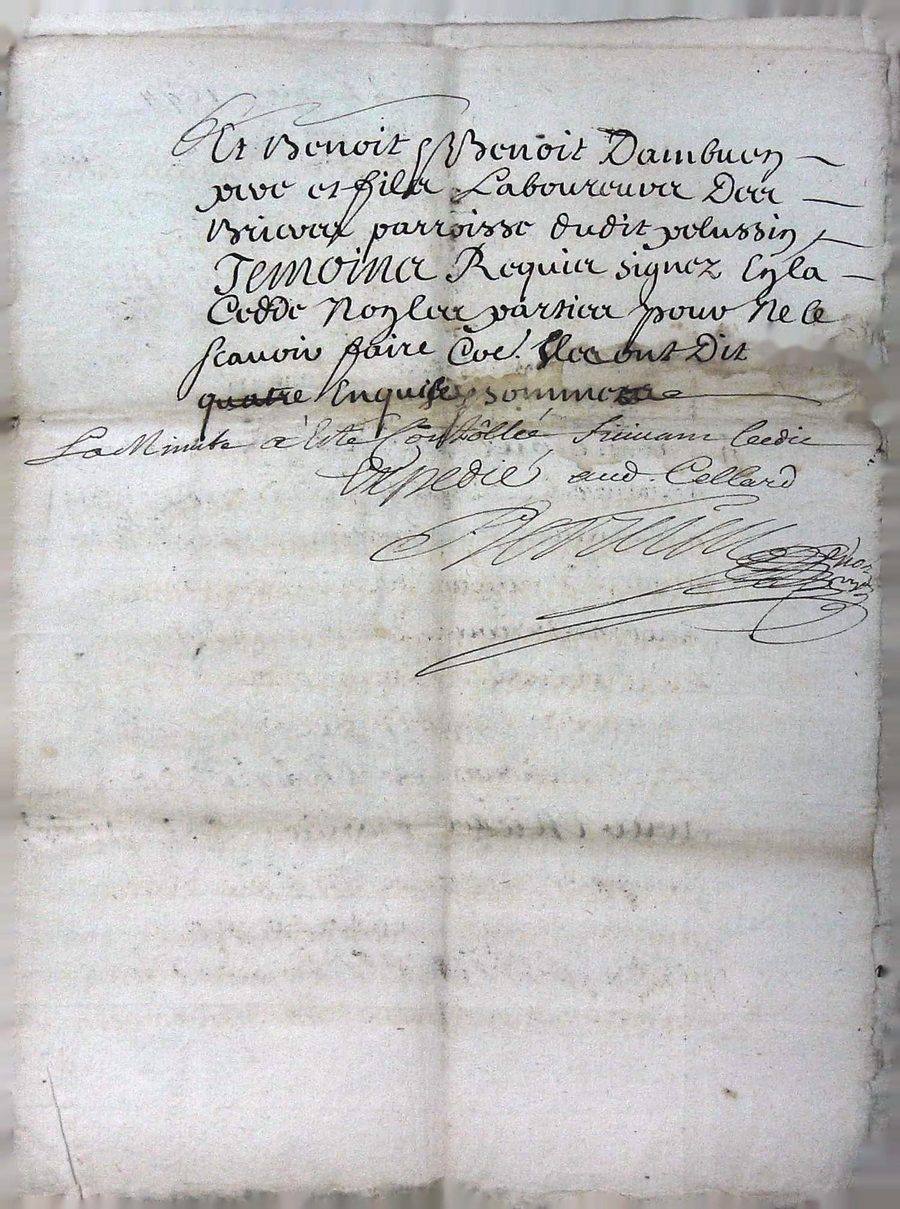 Et Benoit & Benoit Dambuen
pere et fils Laboureurs Des
Brieres parroisse dudit pelussin
Temoins Requis signez En la
Cedde Non les parties pour Ne le
scavoir faire Coe. Ils ont Dit
quatre Enquis sommes
La Minute a Esté Contôllée suivant Ledit
Expedié aud. Cellard